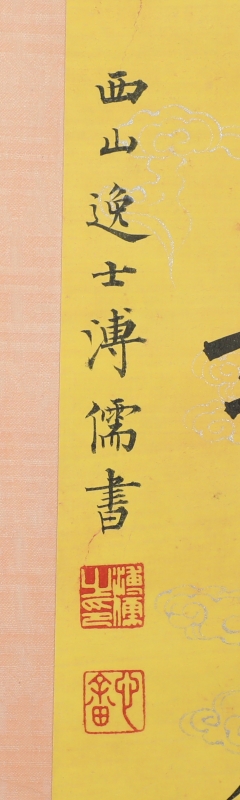 西山逸士溥儒書
溥儒之印
心畬